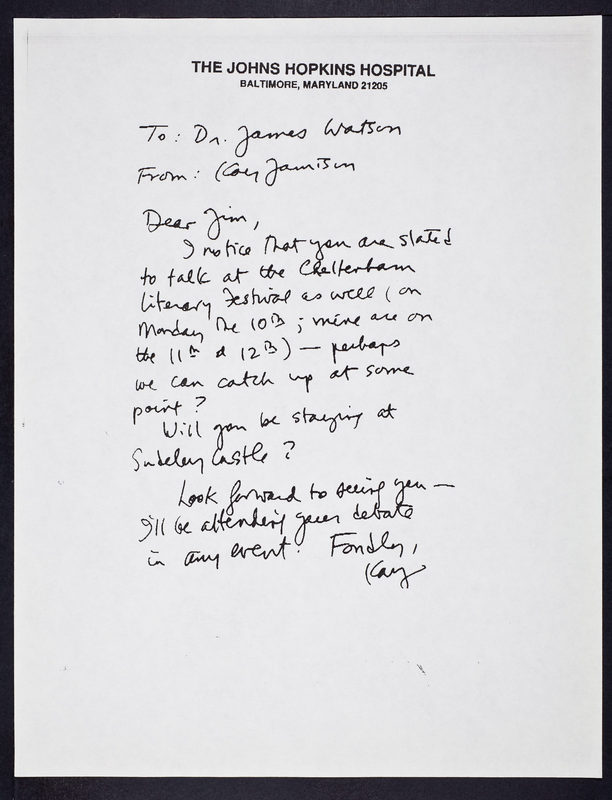 THE JOHNS HOPKINS HOSPITAL
BALTIMORE, MARYLAND 21205
To: Dr. James Watson
From: Kay Jamison
Dear Jim,
I notice that you are slated
to talk at the Cheltenham
Literary Festival as well (on
Monday the 10th; mine are on
the 11th & 12th) — perhaps
we can catch up at some
point?
Will you be staying at
Sudeley Castle?
Look forward to seeing you —
I'll be attending your debate
in any event. Fondly,
Kay